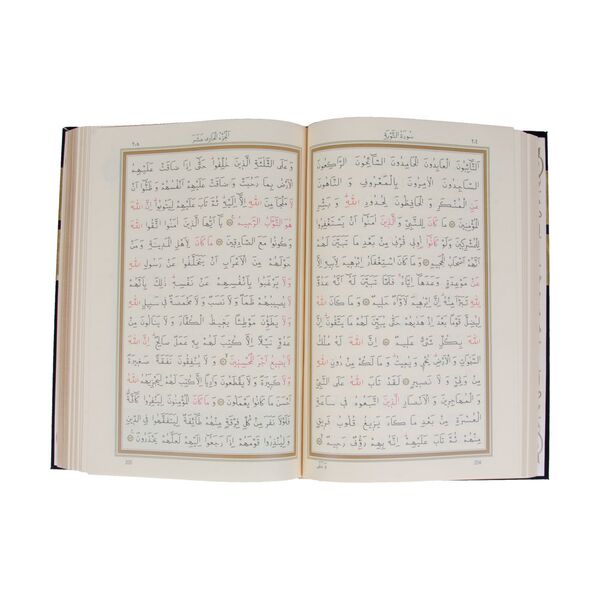 ٢٠٤ سُورَةُ التَّوْبَةِ
اَلتَّآئِبُونَ الْعَابِدُونَ الْحَامِدُونَ السَّآئِحُونَ الرَّاكِعُونَ
السَّاجِدُونَ الْاٰمِرُونَ بِالْمَعْرُوفِ وَالنَّاهُونَ
عَنِ الْمُنْكَرِ وَالْحَافِظُونَ لِحُدُودِ اللّٰهِ وَبَشِّرِ
الْمُؤْمِنِينَ ۝ مَا كَانَ لِلنَّبِيِّ وَالَّذِينَ اٰمَنُٓوا اَنْ يَسْتَغْفِرُوا
لِلْمُشْرِكِينَ وَلَوْ كَانُٓوا اُولِي قُرْبٰى مِنْ بَعْدِ مَا تَبَيَّنَ لَهُمْ
اَنَّهُمْ اَصْحَابُ الْجَحِيمِ ۝ وَمَا كَانَ اسْتِغْفَارُ اِبْرٰهِيمَ لِاَبِيهِ
اِلَّا عَنْ مَوْعِدَةٍ وَعَدَهَٓا اِيَّاهُ فَلَمَّا تَبَيَّنَ لَهُٓ اَنَّهُ عَدُوٌّ
لِلّٰهِ تَبَرَّاَ مِنْهُ اِنَّ اِبْرٰهِيمَ لَاَوَّاهٌ حَلِيمٌ ۝ وَمَا كَانَ اللّٰهُ
لِيُضِلَّ قَوْمًا بَعْدَ اِذْ هَدٰيهُمْ حَتّٰى يُبَيِّنَ لَهُمْ مَا يَتَّقُونَ اِنَّ
اللّٰهَ بِكُلِّ شَيْءٍ عَلِيمٌ ۝ اِنَّ اللّٰهَ لَهُ مُلْكُ
السَّمٰوَاتِ وَالْاَرْضِ يُحْيِي وَيُمِيتُ وَمَا لَكُمْ مِنْ دُونِ اللّٰهِ
مِنْ وَلِيٍّ وَلَا نَصِيرٍ ۝ لَقَدْ تَابَ اللّٰهُ عَلَى النَّبِيِّ
وَالْمُهَاجِرِينَ وَالْاَنْصَارِ الَّذِينَ اتَّبَعُوهُ فِي سَاعَةِ
الْعُسْرَةِ مِنْ بَعْدِ مَا كَادَ يَزِيغُ قُلُوبُ فَرِيقٍ
مِنْهُمْ ثُمَّ تَابَ عَلَيْهِمْ اِنَّهُ بِهِمْ رَؤُفٌ رَحِيمٌ ۝
204
٢٠٥ اَلْجُزْءُ الْحَادِي عَشَرَ
وَعَلَى الثَّلٰثَةِ الَّذِينَ خُلِّفُوا حَتّٰٓى اِذَا ضَاقَتْ عَلَيْهِمُ
الْاَرْضُ بِمَا رَحُبَتْ وَضَاقَتْ عَلَيْهِمْ اَنْفُسُهُمْ وَظَنُّٓوا اَنْ
لَا مَلْجَاَ مِنَ اللّٰهِ اِلَّٓا اِلَيْهِ ثُمَّ تَابَ عَلَيْهِمْ لِيَتُوبُوا اِنَّ اللّٰهَ
هُوَ التَّوَّابُ الرَّحِيمُ ۝ يَٓا اَيُّهَا الَّذِينَ اٰمَنُوا اتَّقُوا اللّٰهَ
وَكُونُوا مَعَ الصَّادِقِينَ ۝ مَا كَانَ لِاَهْلِ الْمَدِينَةِ وَمَنْ
حَوْلَهُمْ مِنَ الْاَعْرَابِ اَنْ يَتَخَلَّفُوا عَنْ رَسُولِ اللّٰهِ
وَلَا يَرْغَبُوا بِاَنْفُسِهِمْ عَنْ نَفْسِهِ ذٰلِكَ بِاَنَّهُمْ
لَا يُصِيبُهُمْ ظَمَاٌ وَلَا نَصَبٌ وَلَا مَخْمَصَةٌ فِي سَبِيلِ اللّٰهِ
وَلَا يَطَؤُنَ مَوْطِئًا يَغِيظُ الْكُفَّارَ وَلَا يَنَالُونَ مِنْ
عَدُوٍّ نَيْلًا اِلَّا كُتِبَ لَهُمْ بِهِ عَمَلٌ صَالِحٌ اِنَّ اللّٰهَ
لَا يُضِيعُ اَجْرَ الْمُحْسِنِينَ ۝ وَلَا يُنْفِقُونَ نَفَقَةً صَغِيرَةً
وَلَا كَبِيرَةً وَلَا يَقْطَعُونَ وَادِيًا اِلَّا كُتِبَ لَهُمْ لِيَجْزِيَهُمُ اللّٰهُ
اَحْسَنَ مَا كَانُوا يَعْمَلُونَ ۝ وَمَا كَانَ الْمُؤْمِنُونَ لِيَنْفِرُوا كَٓافَّةً
فَلَوْلَا نَفَرَ مِنْ كُلِّ فِرْقَةٍ مِنْهُمْ طَٓائِفَةٌ لِيَتَفَقَّهُوا فِي الدِّينِ
وَلِيُنْذِرُوا قَوْمَهُمْ اِذَا رَجَعُٓوا اِلَيْهِمْ لَعَلَّهُمْ يَحْذَرُونَ ۝
205